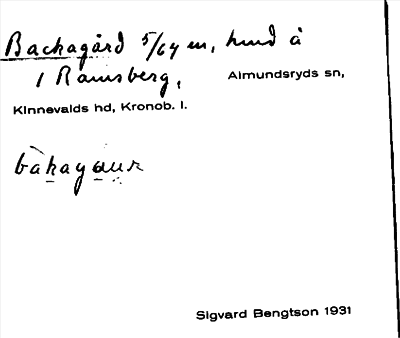 Backagård 5/64 m, hmd å
1 Ramsberg, Almundsryds sn,
Kinnevalds hd, Kronob. l.
Sigvard Bengtson 1931